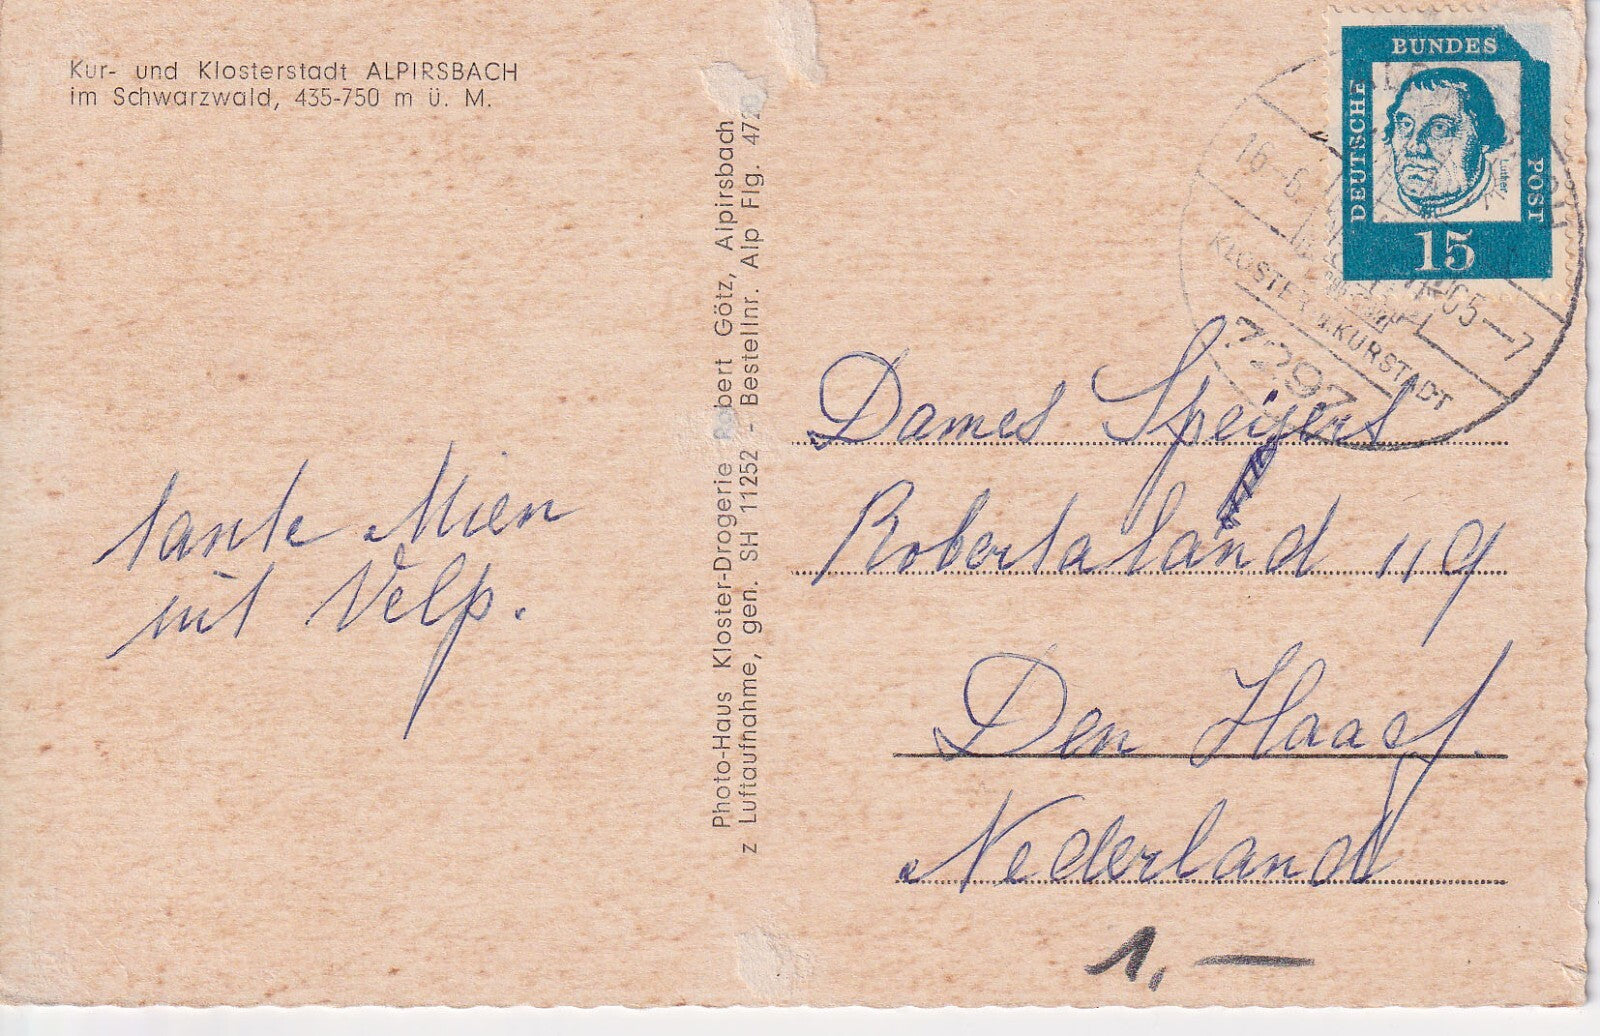 Kur- und Klosterstadt ALPIRSBACH
im Schwarzwald, 435-750 m ü. M.
tante Mien
uit Velp.
Photo-Haus Kloster-Drogerie R bert Götz, Alpirsbach
z Luftaufnahme, gen. SH 11252 - Bestellnr. Alp Flg. 47
DEUTSCHE
BUNDES
POST
Luther
15
16-6
65-7
KLOSTER u. KURSTADT
7297
Dames Speijers
Robertaland 119
Den Haag.
Nederland
1.—